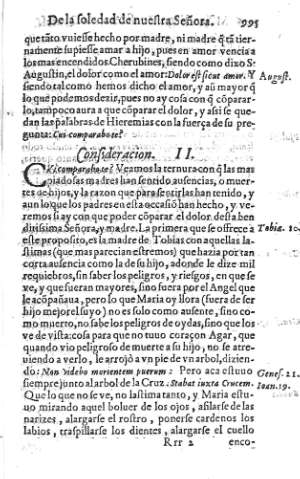 De la soledad de nuestra Señora. 995
que tãto vuiesse hecho por madre, ni madre q̃ tã tier-
namente supiesse amar a hijo, pues en amor vencia a
los mas encendidos Cherubines, siendo como dixo S.
Augustin, el dolor como el amor: Dolor est sicut amor. Y August.
siendo tal como hemos dicho el amor, y aũ mayor q̃
lo que podemos dezir, pues no ay cosa con q̃ cõparar-
lo, tampoco aura a que cõparar el dolor, y assi se que-
dan las palabras de Hieremias con la fuerça de su pre-
gunta: Cui comparabo te?
Consideracion. II.
CVi comparabo te? Veamos la ternura con q̃ las mas
piadosas madres han sentido ausencias, o muer-
tes de hijos, y la razon que para sẽtirlas han tenido, y
aun lo que los padres en esta occasiõ han hecho, y ve-
remos si ay con que poder cõparar el dolor desta ben
ditissima Señora, y madre. La primera que se offrece a Tobia. 10.
este proposito, es la madre de Tobias con aquellas la-
stimas (que mas parecian estremos) que hazia por tan
corta ausencia como la de su hijo, adonde le dize mil
requiebros, sin saber los peligros, y riesgos, en que se
ve, y que fueran mayores, sino fuera por el Angel que
le acõpañaua, pero lo que Maria oy llora (fuera de ser
hijo mejor el suyo) no es solo como ausente, sino co-
mo muerto, no sabe los peligros de oydas, sino que los
ve de vista: cosa para que no tuuo coraçon Agar, que
quando vio peligroso de muerte a su hijo, no se atre-
uiendo a verlo, le arrojò a vn pie de vn arbol, dizien-
do: Non videbo morientem puerum: Pero aca estuuo Genes. 21.
siempre junto al arbol de la Cruz. Stabat iuxta Crucem. Ioan. 19.
Que lo que no se ve, no lastima tanto, y Maria estu-
uo mirando aquel boluer de los ojos, afilarse de las
narizes, alargarse el rostro, ponerse cardenos los
labios, traspillarse los dientes, alargarse el cuello
Rrr 2 enco-